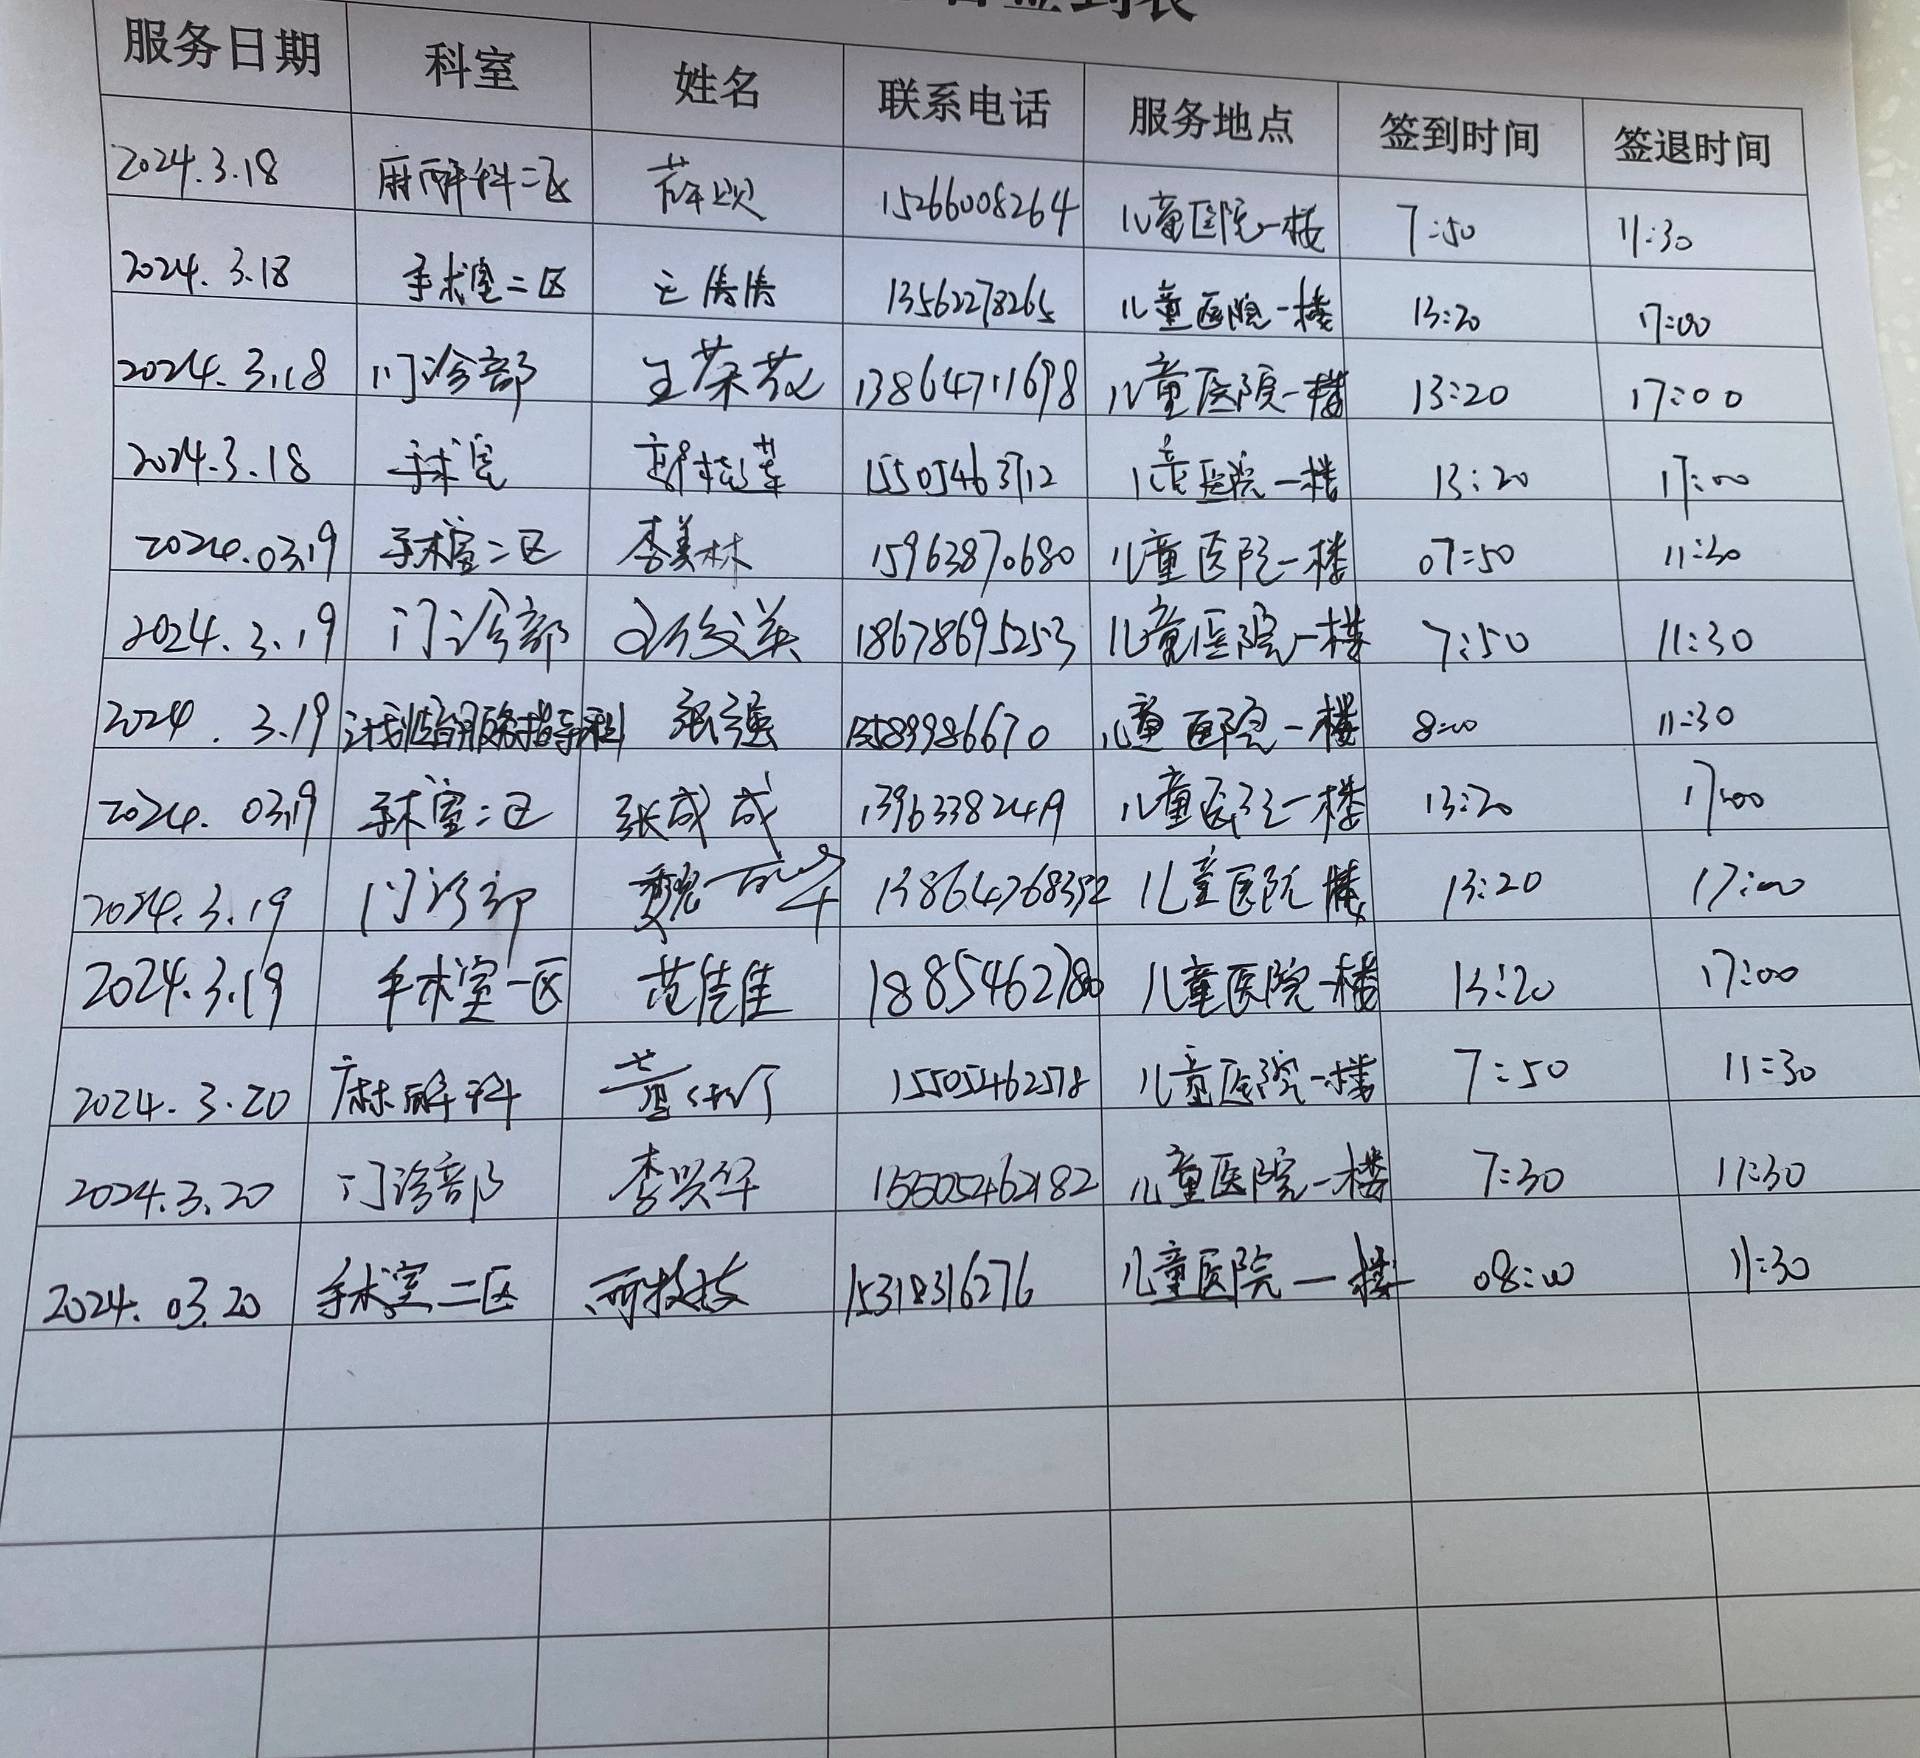 签到表
服务日期 科室 姓名 联系电话 服务地点 签到时间 签退时间
2024.3.18 麻醉科二区 15266008264 儿童医院一楼 7:50 11:30
2024.3.18 手术室二区 13562278265 儿童医院一楼 13:20 17:00
2024.3.18 门诊部 王荣 13864711698 儿童医院一楼 13:20 17:00
2024.3.18 手术室 15505463712 儿童医院一楼 13:20 17:00
2024.03.19 手术室二区 李美林 15963870680 儿童医院一楼 07:50 11:30
2024.3.19 门诊部 18678695253 儿童医院一楼 7:50 11:30
2024.3.19 计划生育服务指导科 张强 13589986670 儿童医院一楼 8:00 11:30
2024.03.19 手术室二区 张成成 13963382419 儿童医院一楼 13:20 17:00
2024.3.19 门诊部 魏 13864768392 儿童医院 楼 13:20 17:00
2024.3.19 手术室一区 范佳佳 18854627 儿童医院一楼 13:20 17:00
2024.3.20 麻醉科 15505462578 儿童医院一楼 7:50 11:30
2024.3.20 门诊部 李兴华 15505462182 儿童医院一楼 7:30 11:30
2024.03.20 手术室二区 15318316276 儿童医院一楼 08:00 11:30